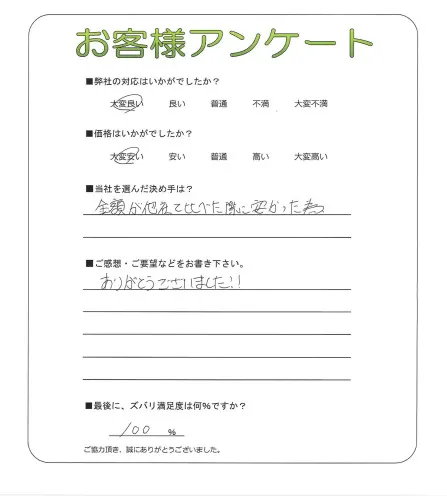 お客様アンケート
■弊社の対応はいかがでしたか？
大変良い 良い 普通 不満 大変不満
■価格はいかがでしたか？
大変安い 安い 普通 高い 大変高い
■当社を選んだ決め手は？
金額が他社と比べた際に安かった為
■ご感想・ご要望などをお書き下さい。
ありがとうございました!!
■最後に、ズバリ満足度は何%ですか？
100 %
ご協力頂き、誠にありがとうございました。